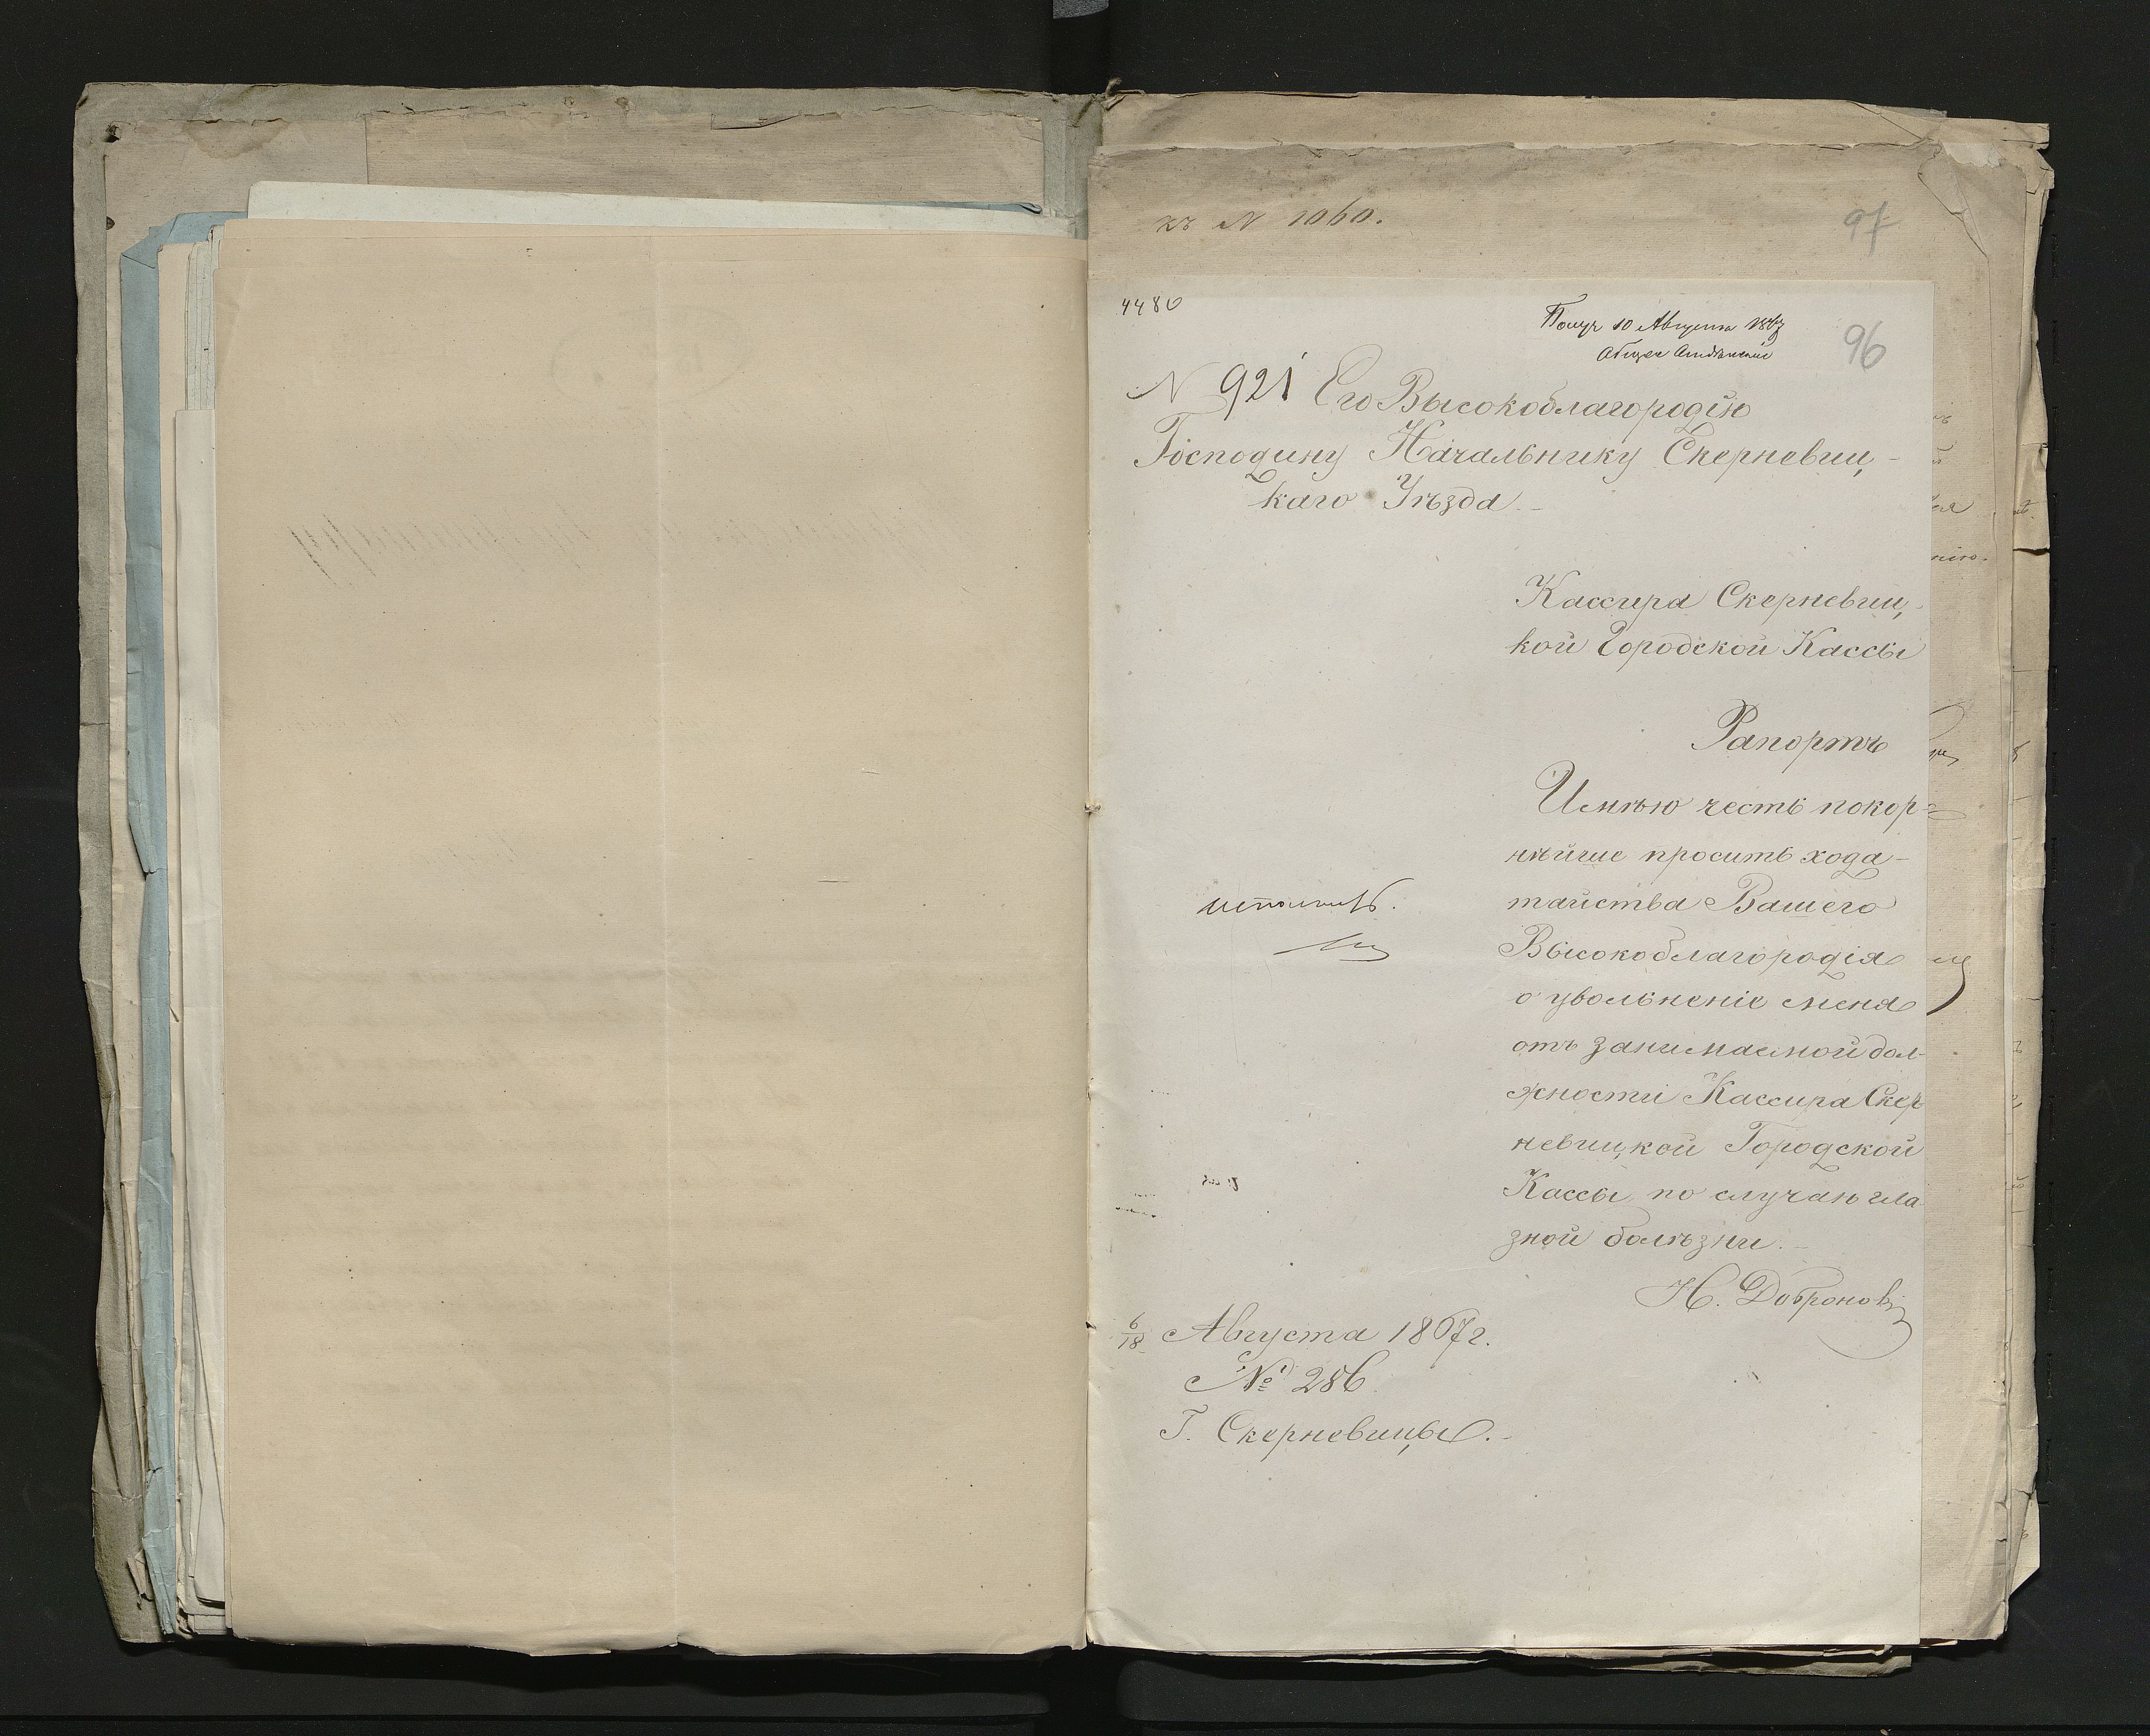 къ N 1060.
97
4480
Получ 10 Августа 1867
96
N 921
Его Высокоблагородію
Господину Начальнику Скерневиц-
каго Уѣзда.-
Кассира Скерневиц-
кой Городской Кассы
Рапортъ
Имѣю честь покор-
нѣйше просить хода-
тайства Вашего
Высокоблагородія
о увольненіе меня
отъ занимаемой дол-
жности Кассира Скер
невицкой Городской
Кассы по случаю гла
зной болѣзни.-
Н. Добронокі
исполнить.
6/18 Августа 1867 г.
№ 286
Г. Скерневицы.-